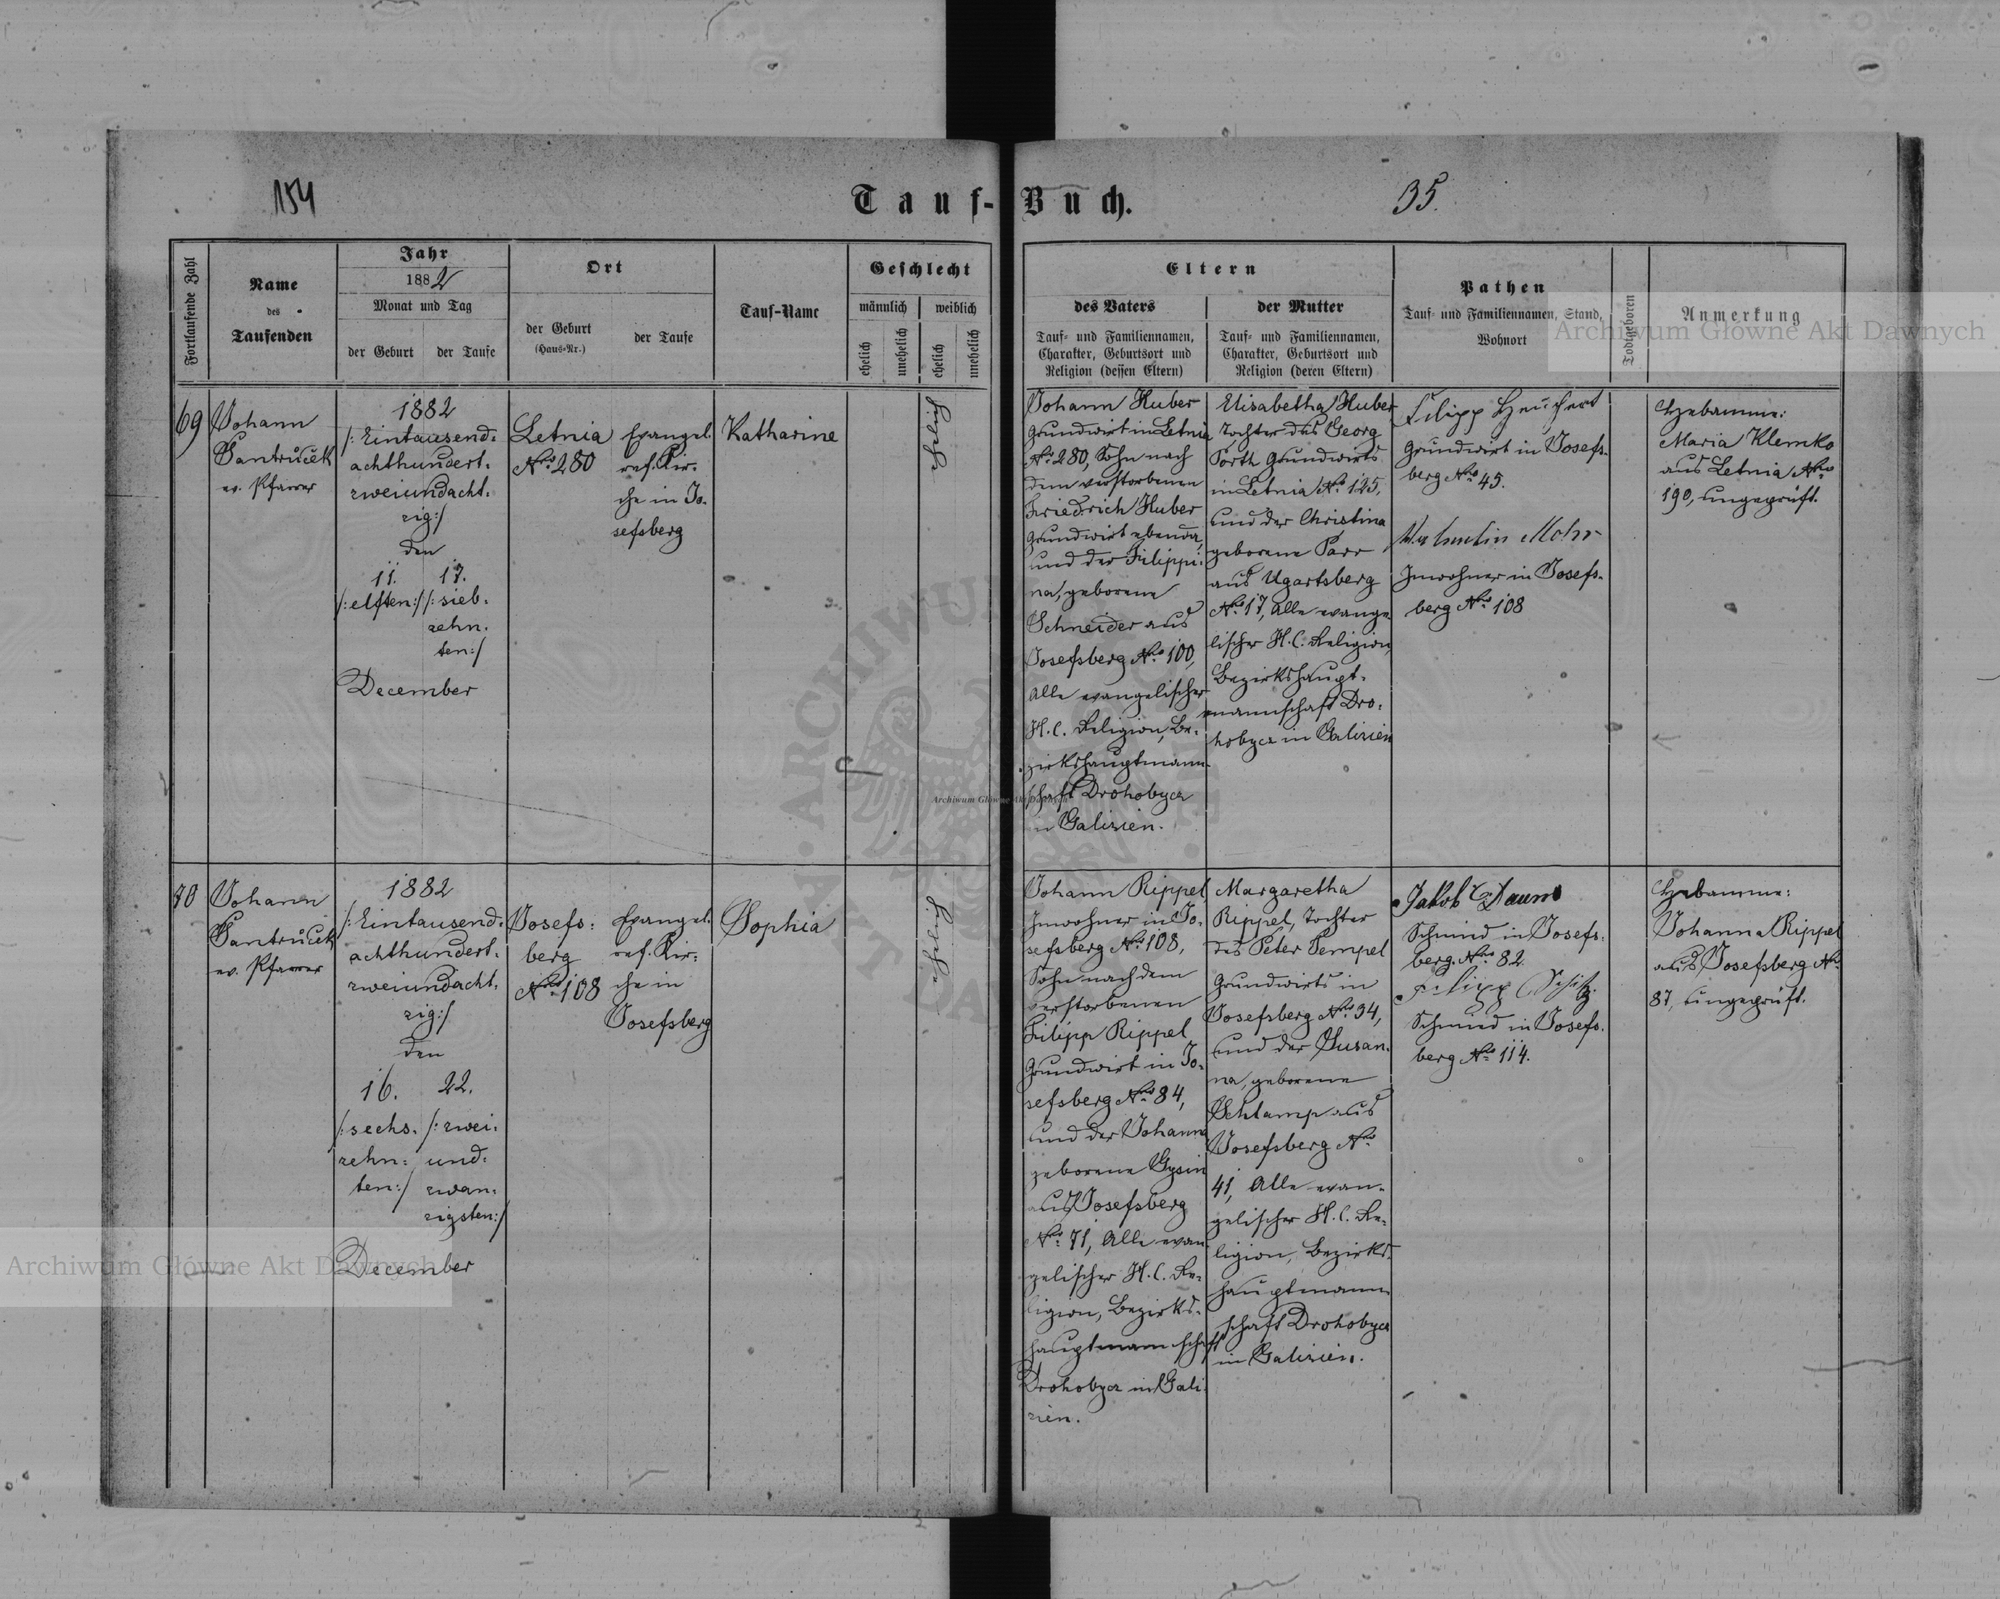 154
Tauf-Buch.
35.
Fortlaufende Zahl
Name
des
Taufenden
Jahr
1882
Monat und Tag
der Geburt
der Taufe
Ort
der Geburt
(Haus-Nr.)
der Taufe
Tauf-Name
Geschlecht
männlich
weiblich
ehelich
unehelich
ehelich
unehelich
Eltern
des Vaters
Tauf- und Familiennamen,
Charakter, Geburtsort und
Religion (dessen Eltern)
der Mutter
Tauf- und Familiennamen,
Charakter, Geburtsort und
Religion (deren Eltern)
Pathen
Tauf- und Familiennamen, Stand,
Wohnort
Todtgeboren
Anmerkung
Archiwum Główne Akt Dawnych
69
Johann
Jantruček
ev. Pfarrer
1882
/: Eintausend-
achthundert-
zweiundacht-
zig :/
den
11.
/: elften :/
17.
/: sieb-
zehn-
ten :/
December
Letnia
No. 280
Evangel.
ref. Kir-
che in Jo-
sefsberg
Katharine
ehelich
Johann Huber
Grundwirt in Letnia
No. 280, Sohn nach
dem verstorbenen
Friedrich Huber
Grundwirt ebenda,
und der Filippi-
na, geborene
Schneider aus
Josefsberg No. 100,
Alle evangelischer
H. C. Religion, Be-
zirkshauptmann-
schaft Drohobycz
in Galizien.
Elisabetha Huber
Tochter des Georg
Porth Grundwirts
in Letnia No. 125,
und der Christina
geborene Parr
aus Ugartsberg
No. 17, Alle evange
lischer H. C. Religion,
Bezirkshaupt-
mannschaft Dro-
hobycz in Galizien
Filipp Heuchert
Grundwirt in Josefs-
berg No. 45.
Valentin Mohr
Inwohner in Josefs-
berg No. 108
Hebamme:
Maria Klemko
aus Letnia No.
190, ungeprüft.
70
Johann
Jantruček
ev. Pfarrer
1882
/: Eintausend-
achthundert-
zweiundacht-
zig :/
den
16.
/: sechs-
zehn-
ten :/
22.
/: zwei-
und-
zwan-
zigsten :/
December
Josefs-
berg
No. 108
Evangel.
ref. Kir-
che in
Josefsberg
Sophia
ehelich
Johann Rippel
Inwohner in Jo-
sefsberg No. 108,
Sohn nach dem
verstorbenen
Filipp Rippel
Grundwirt in Jo-
sefsberg No. 84,
und der Johanna
geborene Gysin
aus Josefsberg
No. 71, Alle evan
gelischer H. C. Re-
ligion, Bezirks-
hauptmannschaft
Drohobycz in Gali
zien.
Margaretha
Rippel, Tochter
des Peter Pempel
Grundwirts in
Josefsberg No. 34,
und der Susan-
na, geborene
Schlamp aus
Josefsberg No.
41, Alle evan-
gelischer H. C. Re-
ligion, Bezirks-
hauptmann-
schaft Drohobycz
in Galizien.
Jakob Daum
Schmied in Josefs-
berg No. 82.
Filipp
Schmied in Josefs-
berg No. 114.
Hebamme:
Johanna Rippel
aus Josefsberg No.
87, ungeprüft.
Archiwum Główne Akt Dawnych
Archiwum Główne Akt Dawnych